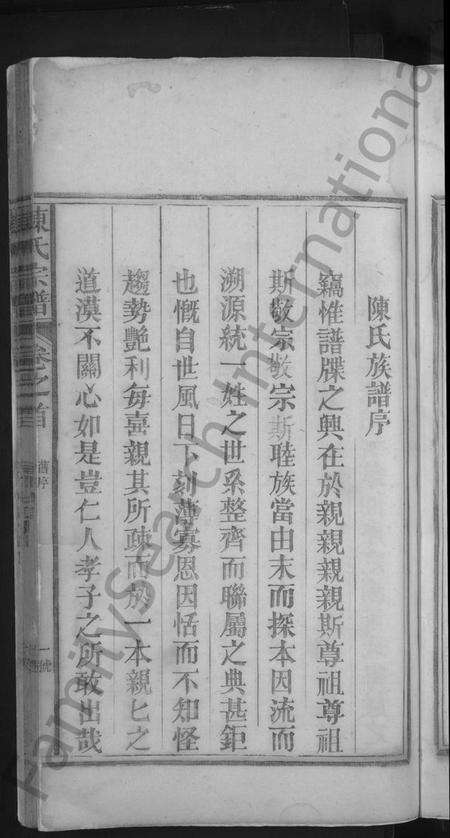 陳氏族譜序
竊惟譜牒之興在於親親親親斯尊祖尊祖
斯敬宗敬宗斯睦族當由末而探本因流而
溯源統一姓之世系整齊而聯屬之典甚鉅
也慨自世風日下刻薄寡恩因恬而不知怪
趨勢艷利每喜親其所疎而於一本親匕之
道漠不關心如是豈仁人孝子之所敢出哉
陳氏宗譜 卷之首
舊序
FamilySearch International